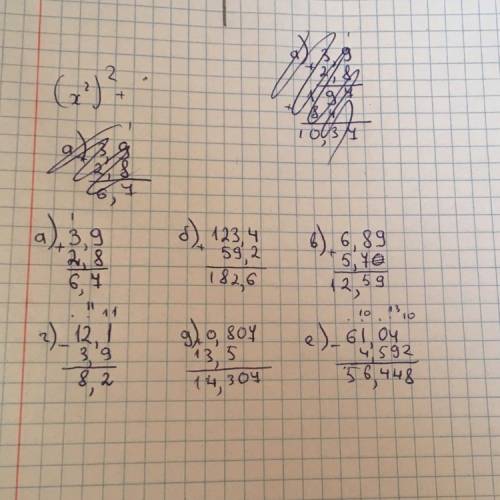 (x²)² +
а) + 3,9
2,8
6,7
а) + 3,9
2,8
6,7
б) + 123,4
59,2
182,6
в) + 6,89
5,70
12,59
г) - 12,1
3,9
8,2
д) 0,807
13,5
14,307
е) - 61,04
4,592
56,448